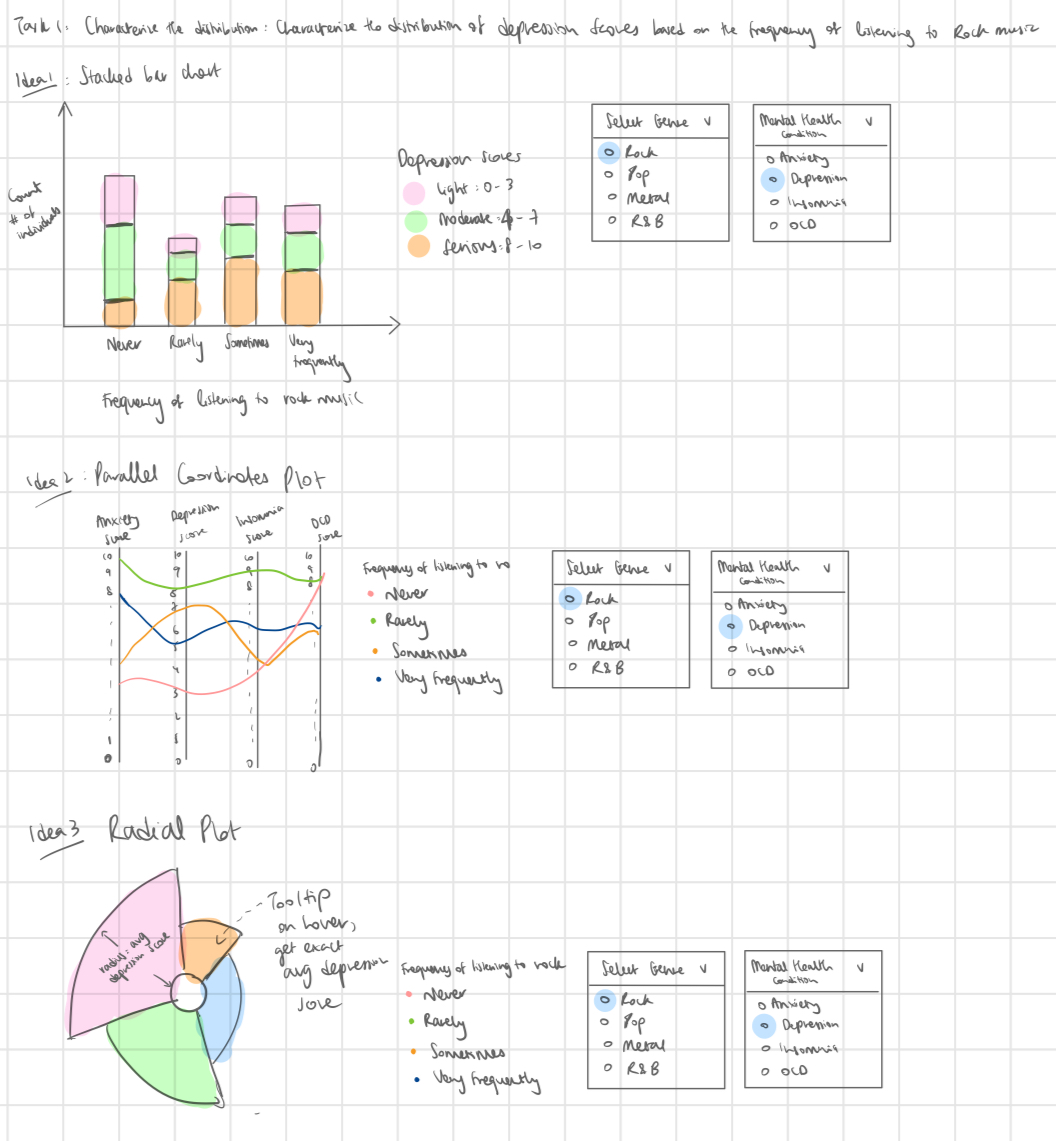 Task 1: Characterize the distribution: Characterize the distribution of depression scores based on the frequency of listening to Rock music
Idea 1: Stacked bar chart
Count
# of
individuals
Never
Rarely
Sometimes
Very
frequently
Frequency of listening to rock music
Depression scores
light: 0-3
moderate: 4-7
serious: 8-10
Select Genre V
Rock
Pop
Metal
R&B
Mental Health V
Condition
Anxiety
Depression
Insomnia
OCD
idea 2: Parallel Coordinates Plot
Anxiety
score
Depression
score
Insomnia
score
OCD
score
10
9
8
1
0
10
9
8
7
6
5
4
3
2
1
0
10
9
8
0
10
9
8
0
Frequency of listening to ro
Never
Rarely
Sometimes
Very Frequently
Select Genre V
Rock
Pop
Metal
R&B
Mental Health V
Condition
Anxiety
Depression
Insomnia
OCD
Idea 3 Radial Plot
radius: avg
depression score
Tooltip
on hover,
get exact
avg depression
score
Frequency of listening to rock
Never
Rarely
Sometimes
Very Frequently
Select Genre V
Rock
Pop
Metal
R&B
Mental Health V
Condition
Anxiety
Depression
Insomnia
OCD